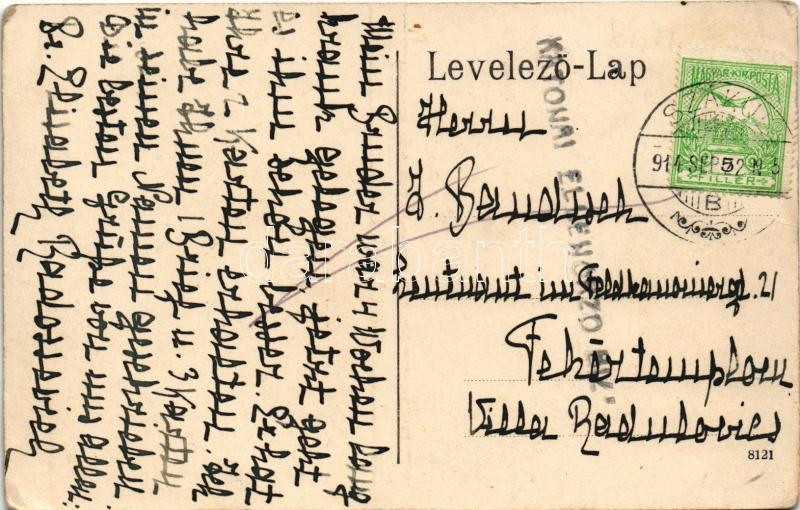 Levelező-Lap
MAGYAR KIR. POSTA
FILLÉR
914 SEP
B
KATONAI ELLENŐRZŐ
Herrn
J. Bandisch
Leutnant im Feldkanonenrgt. 21
Fehértemplom
Villa Radulovics
8121
Mein Bruder war 4 Wochen lang
krank gelegen, jetzt geht
es ihm schon besser. Er hat
2 Karten erhalten. Ich
habe schon 1 Brief u. 3 Karten
in Namen geschrieben.
Die besten Grüße von uns allen.
darabanth